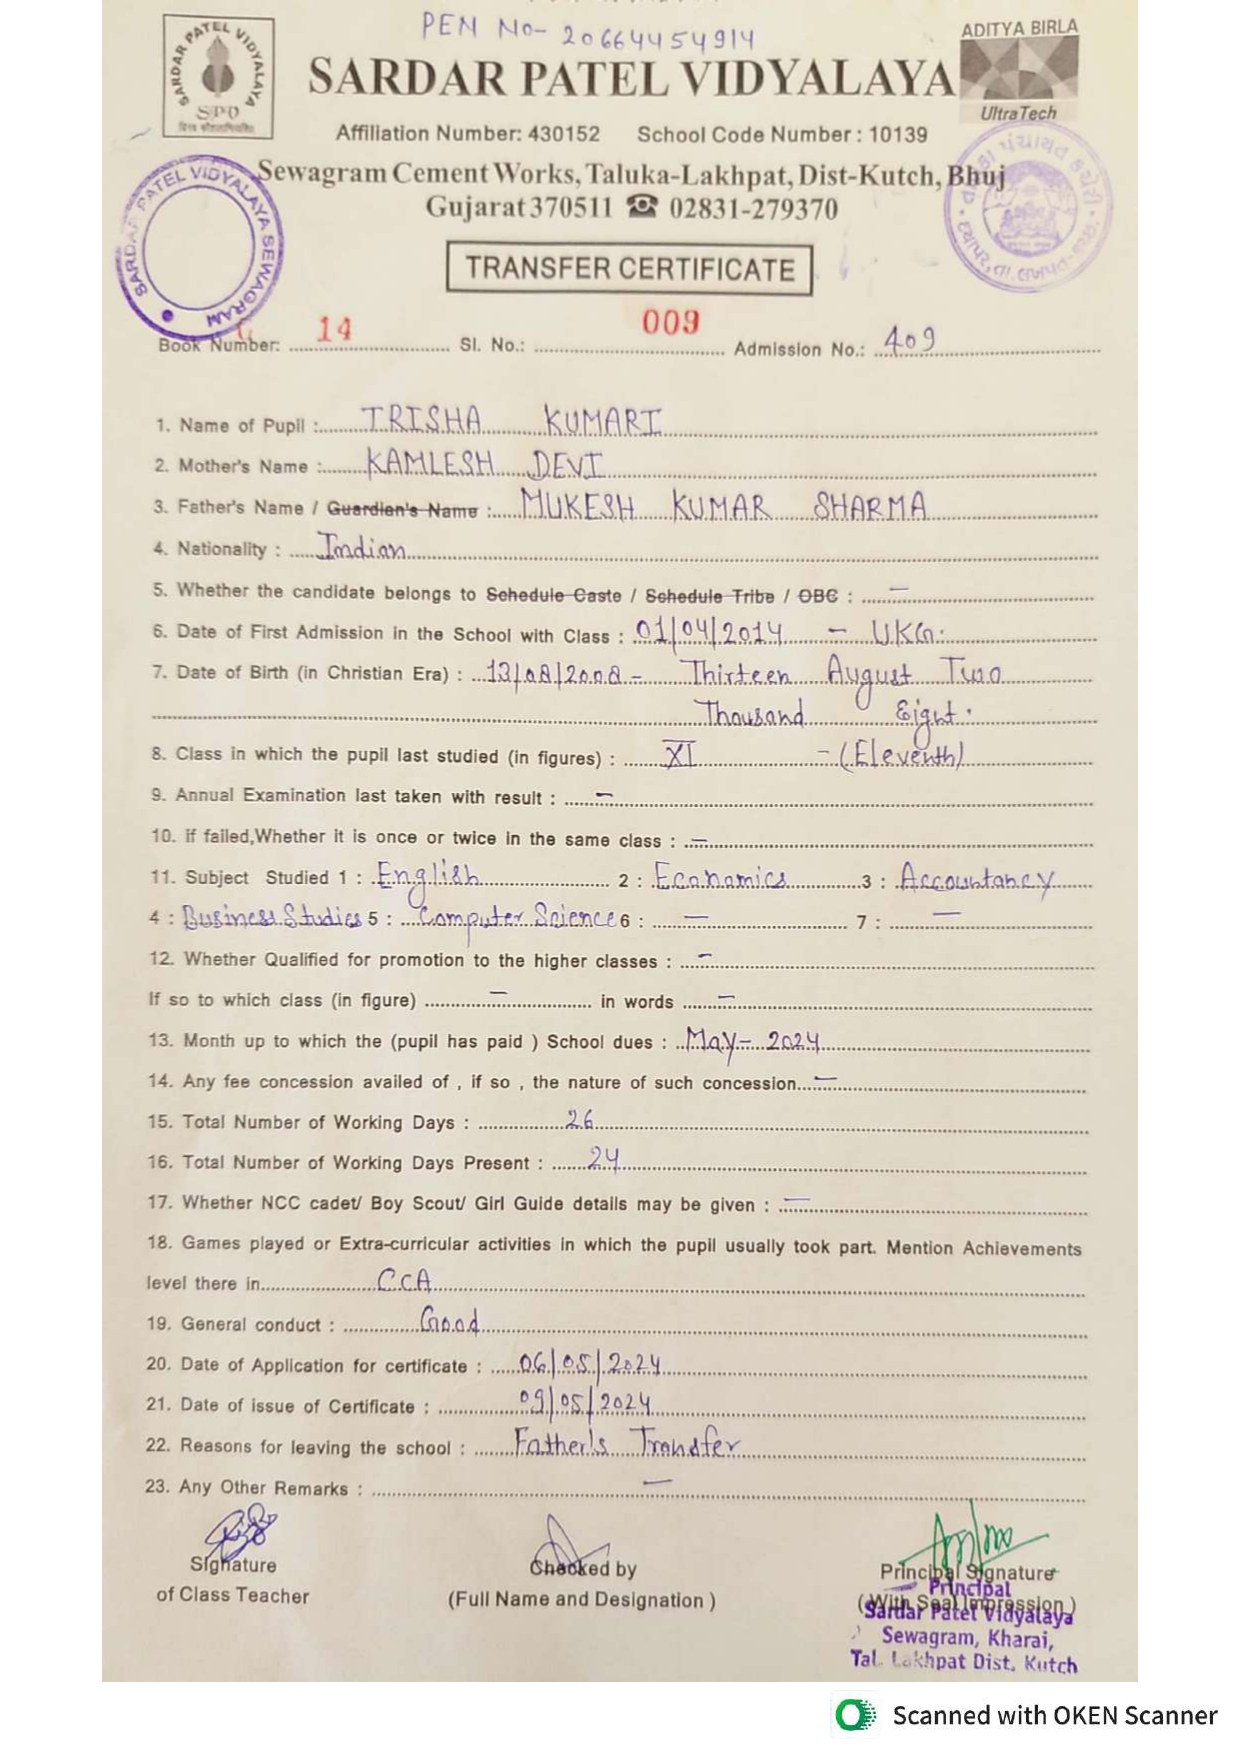 PEN No- 20664454914
SARDAR PATEL VIDYALAYA
SPV
ADITYA BIRLA
UltraTech
SARDAR PATEL VIDYALAYA
Affiliation Number: 430152 School Code Number : 10139
Sewagram Cement Works, Taluka-Lakhpat, Dist-Kutch, Bhuj
Gujarat 370511 ☎ 02831-279370
SARDAR PATEL VIDYALAYA SEWAGRAM
TRANSFER CERTIFICATE
Book Number: 14 Sl. No.: 009 Admission No.: 409
1. Name of Pupil : TRISHA KUMARI
2. Mother's Name : KAMLESH DEVI
3. Father's Name / Guardien's Name : MUKESH KUMAR SHARMA
4. Nationality : Indian
5. Whether the candidate belongs to Schedule Caste / Schedule Tribe / OBC : —
6. Date of First Admission in the School with Class : 01/04/2014 - UKG.
7. Date of Birth (in Christian Era) : 13/08/2008 - Thirteen August Two
Thousand Eight.
8. Class in which the pupil last studied (in figures) : XI - (Eleventh)
9. Annual Examination last taken with result : —
10. if failed,Whether it is once or twice in the same class : —
11. Subject Studied 1 : English 2 : Economics 3 : Accountancy
4 : Business Studies 5 : Computer Science 6 : — 7 : —
12. Whether Qualified for promotion to the higher classes : —
If so to which class (in figure) — in words —
13. Month up to which the (pupil has paid ) School dues : May- 2024
14. Any fee concession availed of , if so , the nature of such concession —
15. Total Number of Working Days : 26
16. Total Number of Working Days Present : 24
17. Whether NCC cadet/ Boy Scout/ Girl Guide details may be given : —
18. Games played or Extra-curricular activities in which the pupil usually took part. Mention Achievements
level there in CCA
19. General conduct : Good
20. Date of Application for certificate : 06/05/2024
21. Date of issue of Certificate : 09/05/2024
22. Reasons for leaving the school : Father's Transfer
23. Any Other Remarks : —
Signature
of Class Teacher
Checked by
(Full Name and Designation )
Principal Signature
(With Seal Impression )
Principal
Sardar Patel Vidyalaya
Sewagram, Kharai,
Tal. Lakhpat Dist. Kutch
Scanned with OKEN Scanner